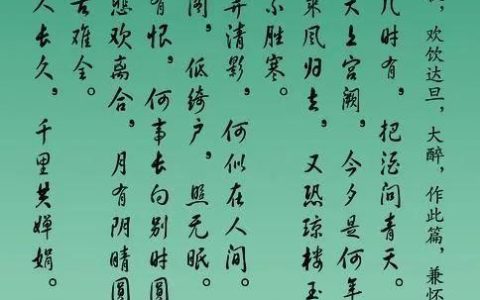 ，欢饮达旦，大醉，作此篇，兼怀
几时有，把酒问青天。
天上宫阙，今夕是何年
乘风归去，又恐琼楼玉
不胜寒。
弄清影，何似在人间。
阁，低绮户，照无眠。
有恨，何事长向别时圆
悲欢离合，月有阴晴圆
古难全。
人长久，千里共婵娟。